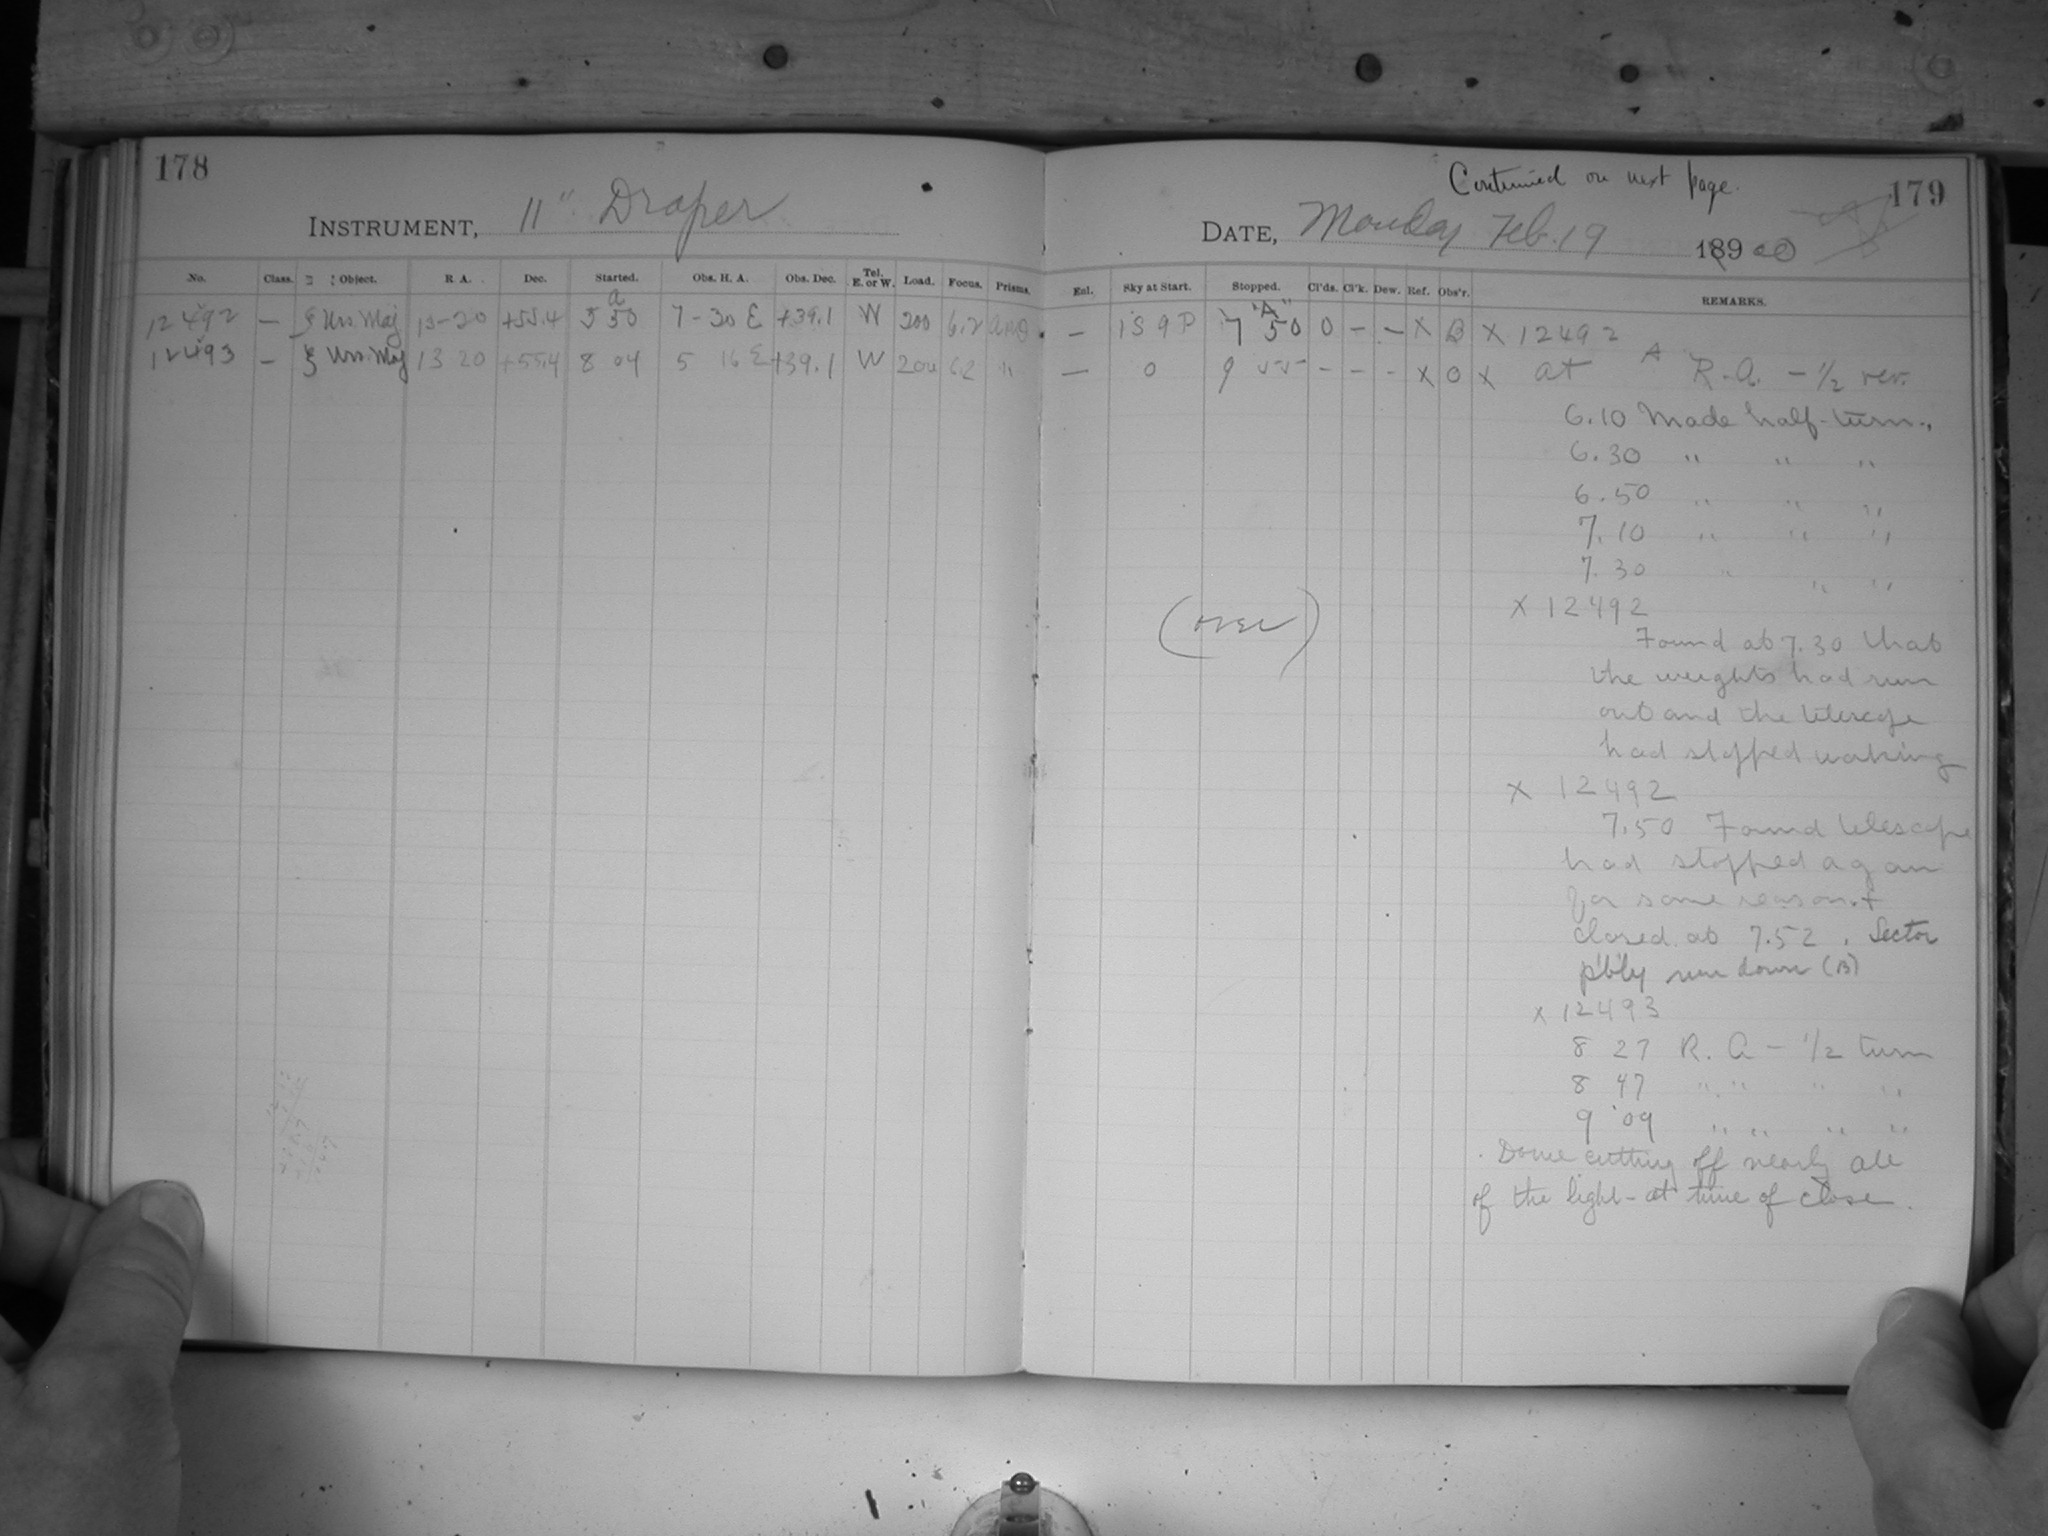 178
INSTRUMENT, 11" Draper
No. Class. Object. R. A. Dec. Started. Obs. H. A. Obs. Dec. Tel. E. or W. Load. Focus. Prisms.
12492 — ζ Urs. Maj 13-20 +55.4 5 50 7-30 E +39.1 W 200 6.2
12493 — ζ Urs. Maj 13 20 +55.4 8 04 5 16 E +39.1 W 200 6.2 "
Continued on next page.
179
DATE, Monday Feb. 19 1900
Enl. Sky at Start. Stopped. Cl'ds. Cl'k. Dew. Ref. Obs'r. REMARKS.
— 1S 9P 7 50 0 – – X B X 12492
— 0 9 55 – – – X O X at R.A. – 1/2 rev.
6.10 Made half-turn.
6.30 " " "
6.50 " " "
7.10 " " "
7.30 " " "
(over)
X 12492
Found at 7.30 that
the weights had run
out and the telescope
had stopped working
X 12492
7.50 Found telescope
had stopped again
for some reason +
closed at 7.52. Sector
p'b'ly run down (B)
X 12493
8 27 R. A – 1/2 turn
8 47 " " " "
9 09 " " " "
Dome cutting off nearly all
of the light – at time of close.